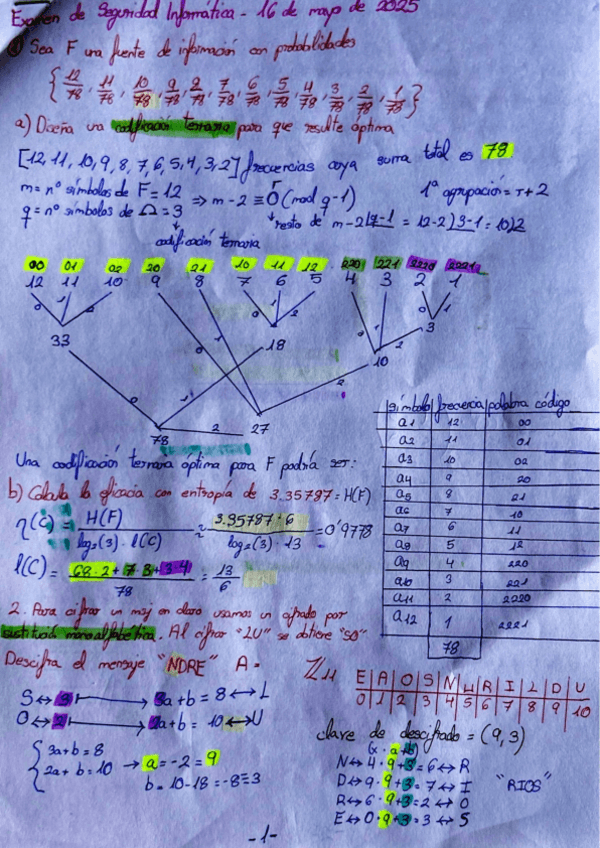 Examen de Seguridad Informática - 16 de mayo de 2025
① Sea F una fuente de información con probabilidades
{12/78, 11/78, 10/78, 9/78, 8/78, 7/78, 6/78, 5/78, 4/78, 3/78, 2/78, 1/78}
a) Diseña una codificación ternaria para que resulte óptima
[12,11,10,9,8,7,6,5,4,3,2] frecuencias cuya suma total es 78
m = nº símbolos de F = 12 ⇒ m-2 ≡ r (mod q-1) 1ª agrupación = r+2
q = nº símbolos de Ω = 3 resto de m-2 | q-1 = 12-2 ) 3-1 = 10 ) 2
codificación ternaria
00 01 02 20 21 10 11 12 220 221 2220 2221
12 11 10 9 8 7 6 5 4 3 2 1
0 1 2 0 1 2 0 1 0 1
3
33 18 10
2
0 1 2
78 27
símbolo frecuencia palabra código
a1 12 00
a2 11 01
a3 10 02
a4 9 20
a5 8 21
a6 7 10
a7 6 11
a8 5 12
a9 4 220
a10 3 221
a11 2 2220
a12 1 2221
78
Una codificación ternaria óptima para F podría ser:
b) Calcula la eficacia con entropía de 3.35797 = H(F)
η(C) = H(F) / log₂(3) · l(C) ≈ 3.35797 · 6 / log₂(3) · 13 = 0'9778
l(C) = 68·2+7·3+3·4 / 78 = 13/6
2. Para cifrar un msj en claro usamos un cifrado por
sustitución monoalfabética. Al cifrar "LU" se obtiene "SO"
Descifra el mensaje "NDRE" A =
ℤ11
E A O S N W R I L D U
0 1 2 3 4 5 6 7 8 9 10
S ↔ 3 → 3a+b = 8 ↔ L
O ↔ 2 → 2a+b = 10 ↔ U
{ 3a+b = 8
2a+b = 10 → a = -2 = 9
b = 10-18 = -8 ≡ 3
clave de descifrado = (9,3)
(x·a+b)
N ↔ 4·9+3 = 6 ↔ R
D ↔ 9·9+3 = 7 ↔ I
R ↔ 6·9+3 = 2 ↔ O
E ↔ 0·9+3 = 3 ↔ S
"RIOS"
-1-